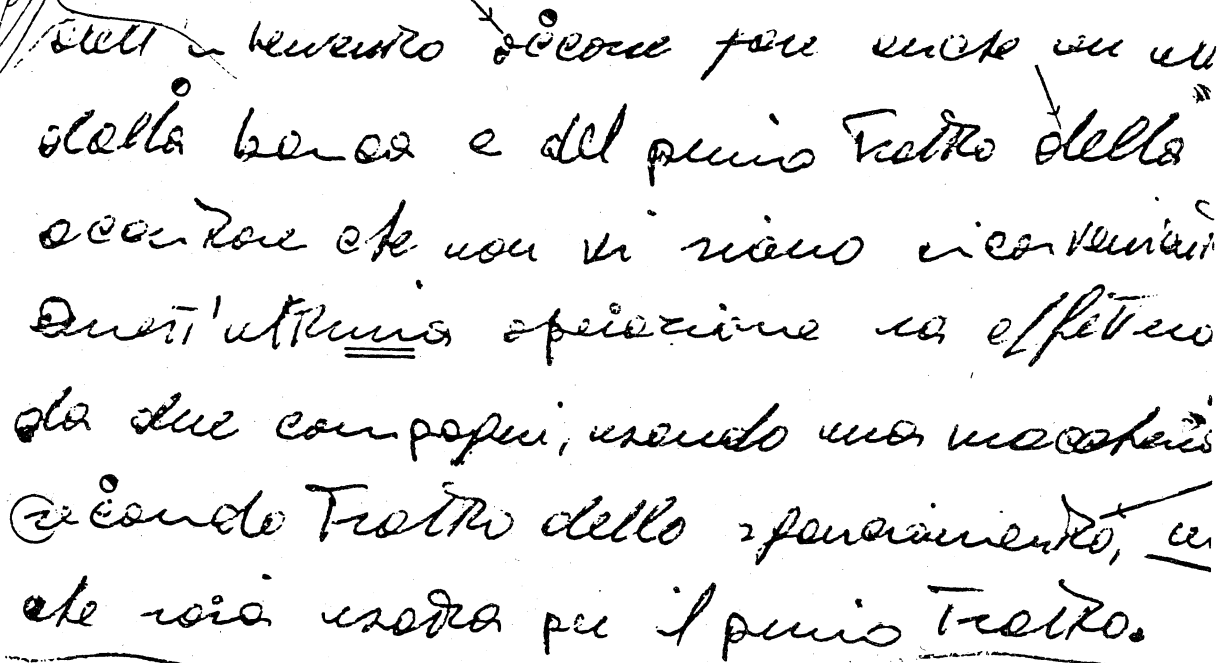 dell'intervento occorre fare anche un
dalla banca e del primo Tratto della
accertare che non vi siano inconvenienti
Quest'ultima operazione va effettua
da due compagni, usando una macchina
secondo Tratto dello sganciamento,
che sarà usata per il primo Tratto.